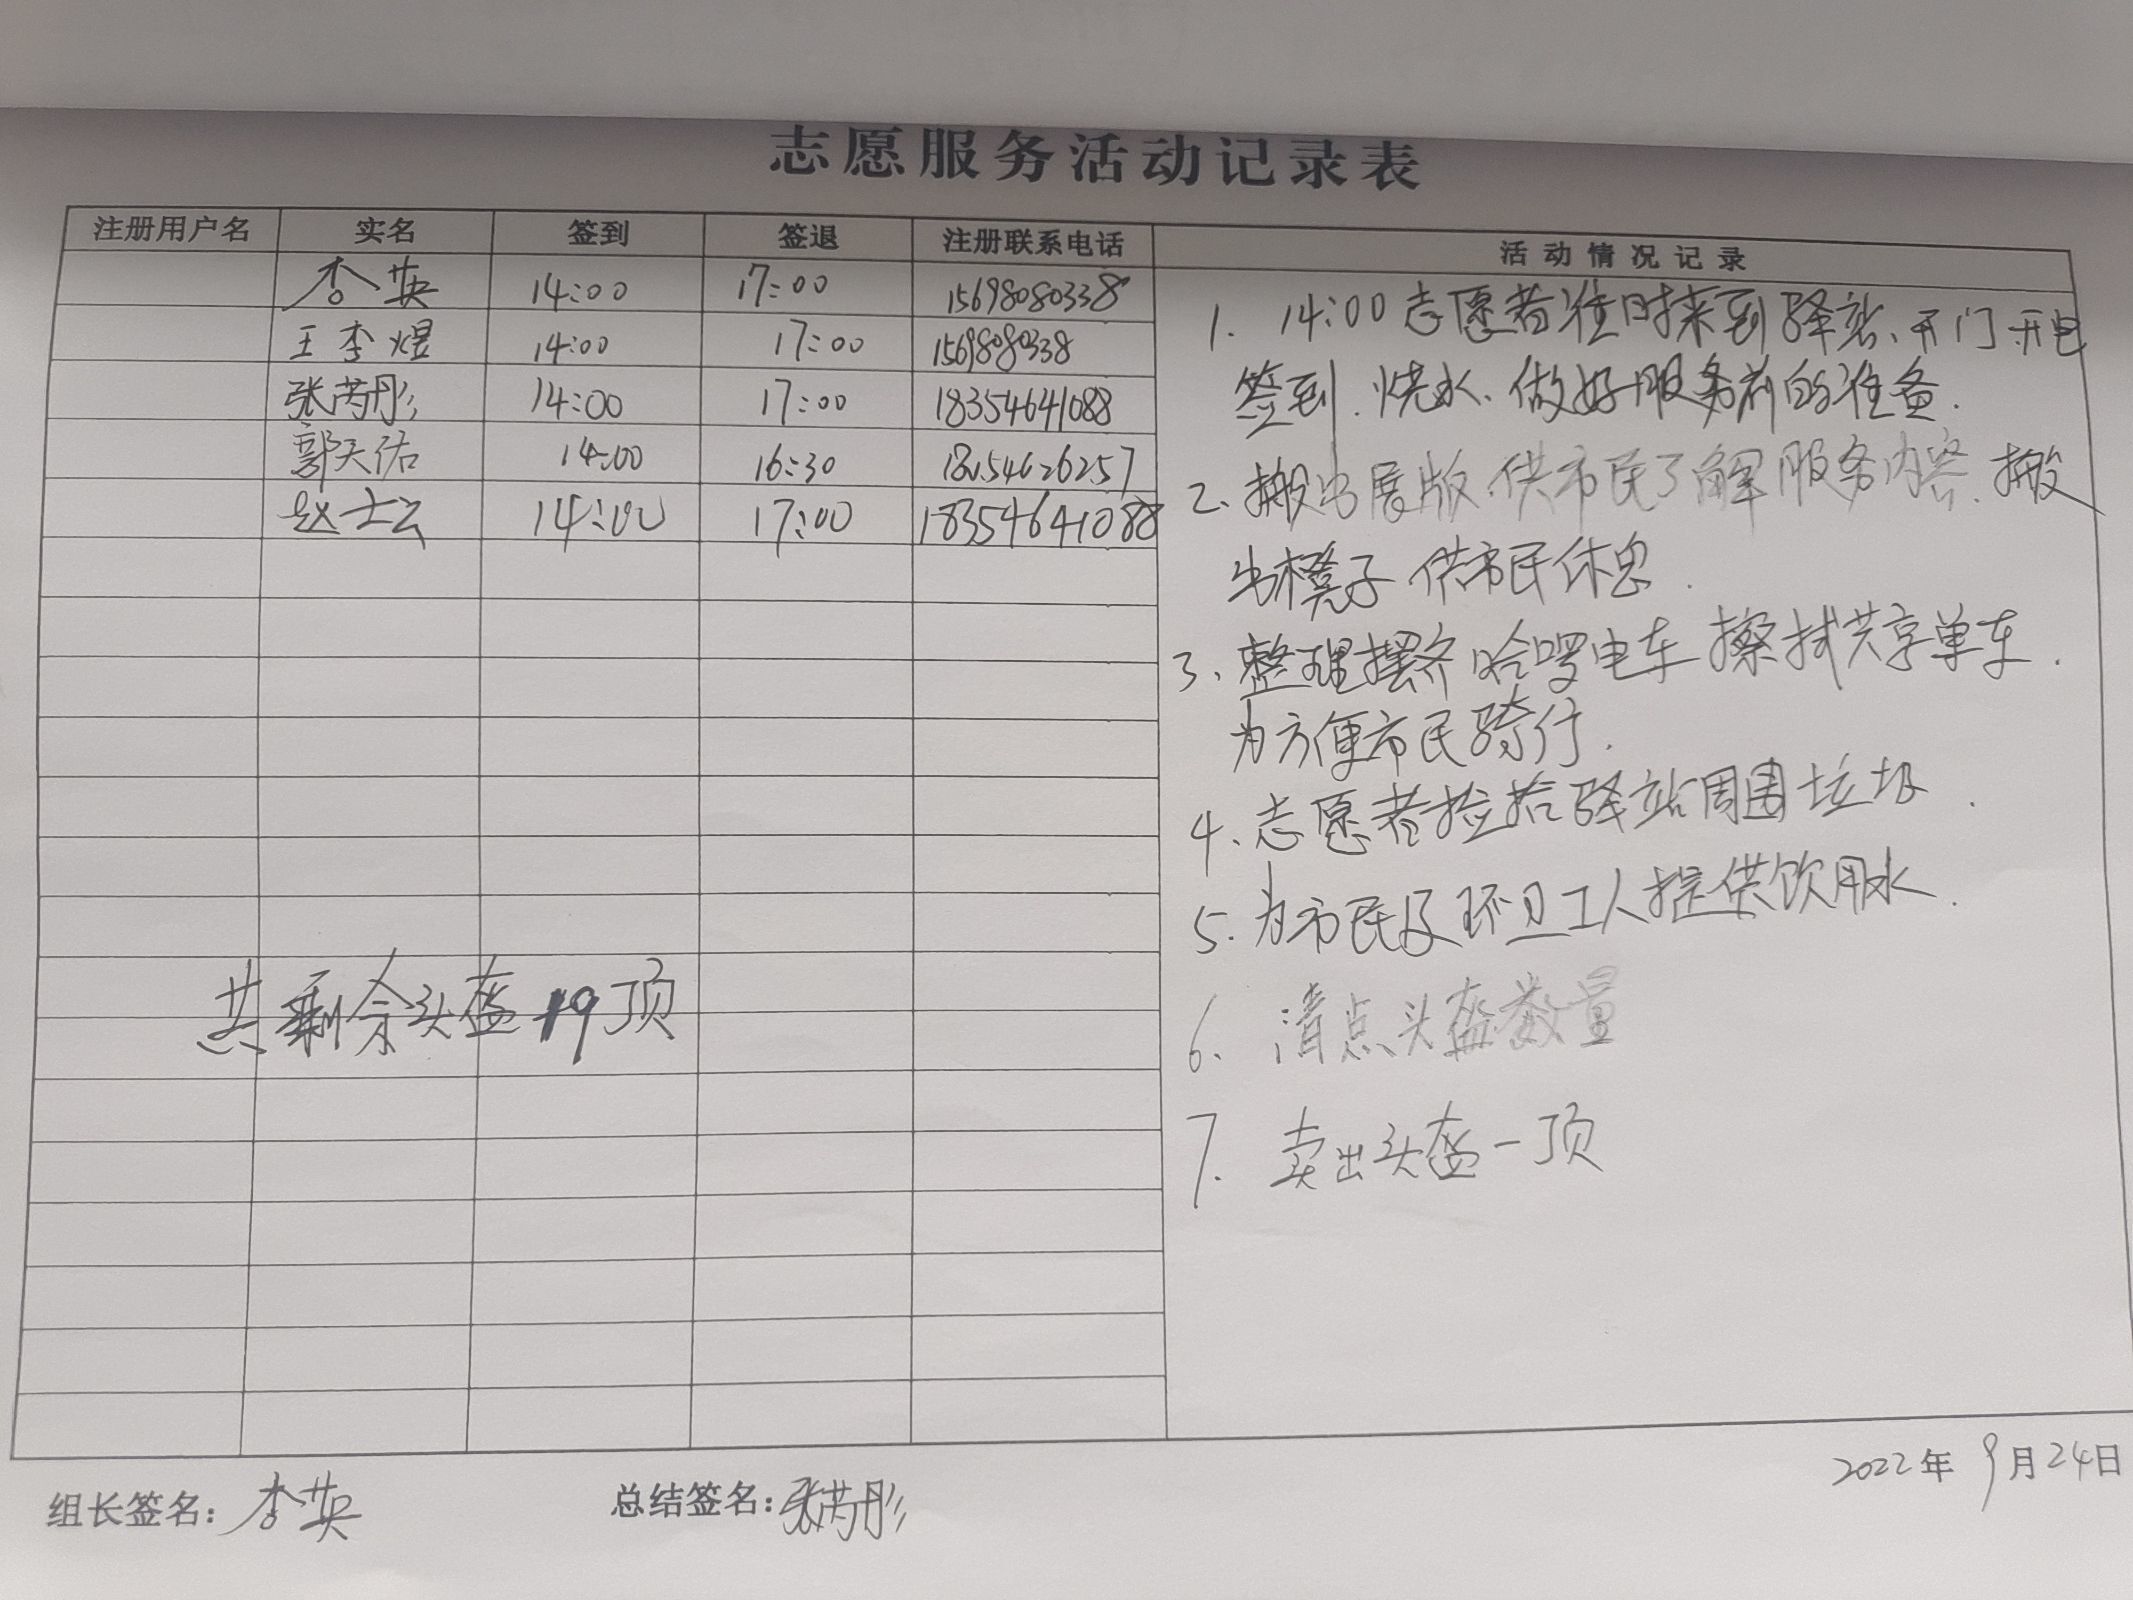 志愿服务活动记录表
注册用户名 实名 签到 签退 注册联系电话 活动情况记录
李英 14:00 17:00 15698080338
王李煜 14:00 17:00 15698080338
张芮彤 14:00 17:00 18354641088
郭天佑 14:00 16:30
赵士云 14:00 17:00 18354641088
1. 14:00志愿者准时来到驿站、开门开电
签到.烧水.做好服务前的准备.
2、搬出展版.供市民了解服务内容.搬
出凳子供市民休息.
3、整理摆齐哈啰电车擦拭共享单车.
为方便市民骑行.
4、志愿者捡拾驿站周围垃圾.
5.为市民及环卫工人提供饮用水.
6.清点头盔数量
7.卖出头盔一顶
共剩余头盔19顶
组长签名:李英 总结签名:张芮彤 2022年9月24日